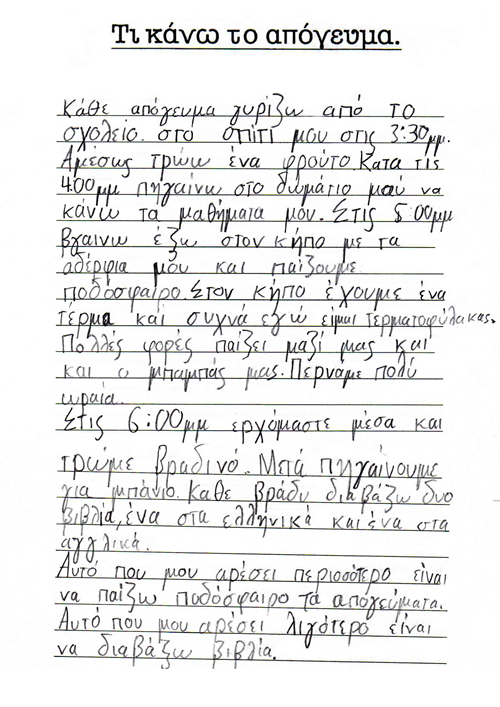 Τι κάνω το απόγευμα.
Κάθε απόγευμα γυρίζω από το
σχολείο στο σπίτι μου στις 3:30μμ.
Αμέσως τρώω ένα φρούτο. Κατα τις
4:00μμ πηγαίνω στο δωμάτιο μού να
κάνω τα μαθήματα μου. Στις 5:00μμ
βγαινω έξω στον κήπο με τα
αδέρφια μου και παίζουμε
ποδόσφαιρο. Στον κήπο έχουμε ένα
τέρμα και συχνά εγώ είμαι τερματοφύλακας.
Πολλές φορές παίζει μαζί μας και
και ο μπαμπάς μας. Περναμε πολύ
ωραία.
Στις 6:00μμ ερχόμαστε μέσα και
τρώμε βραδινό. Μετά πηγαίνουμε
για μπάνιο. Καθε βράδυ διαβάζω δυο
βιβλία, ένα στα ελληνικά και ένα στα
αγγλικά.
Αυτό που μου αρέσει περισσότερο είναι
να παίζω ποδόσφαιρο τα απόγεύματα.
Αυτό που μου αρέσει λιγότερο είναι
να διαβάζω βιβλία.